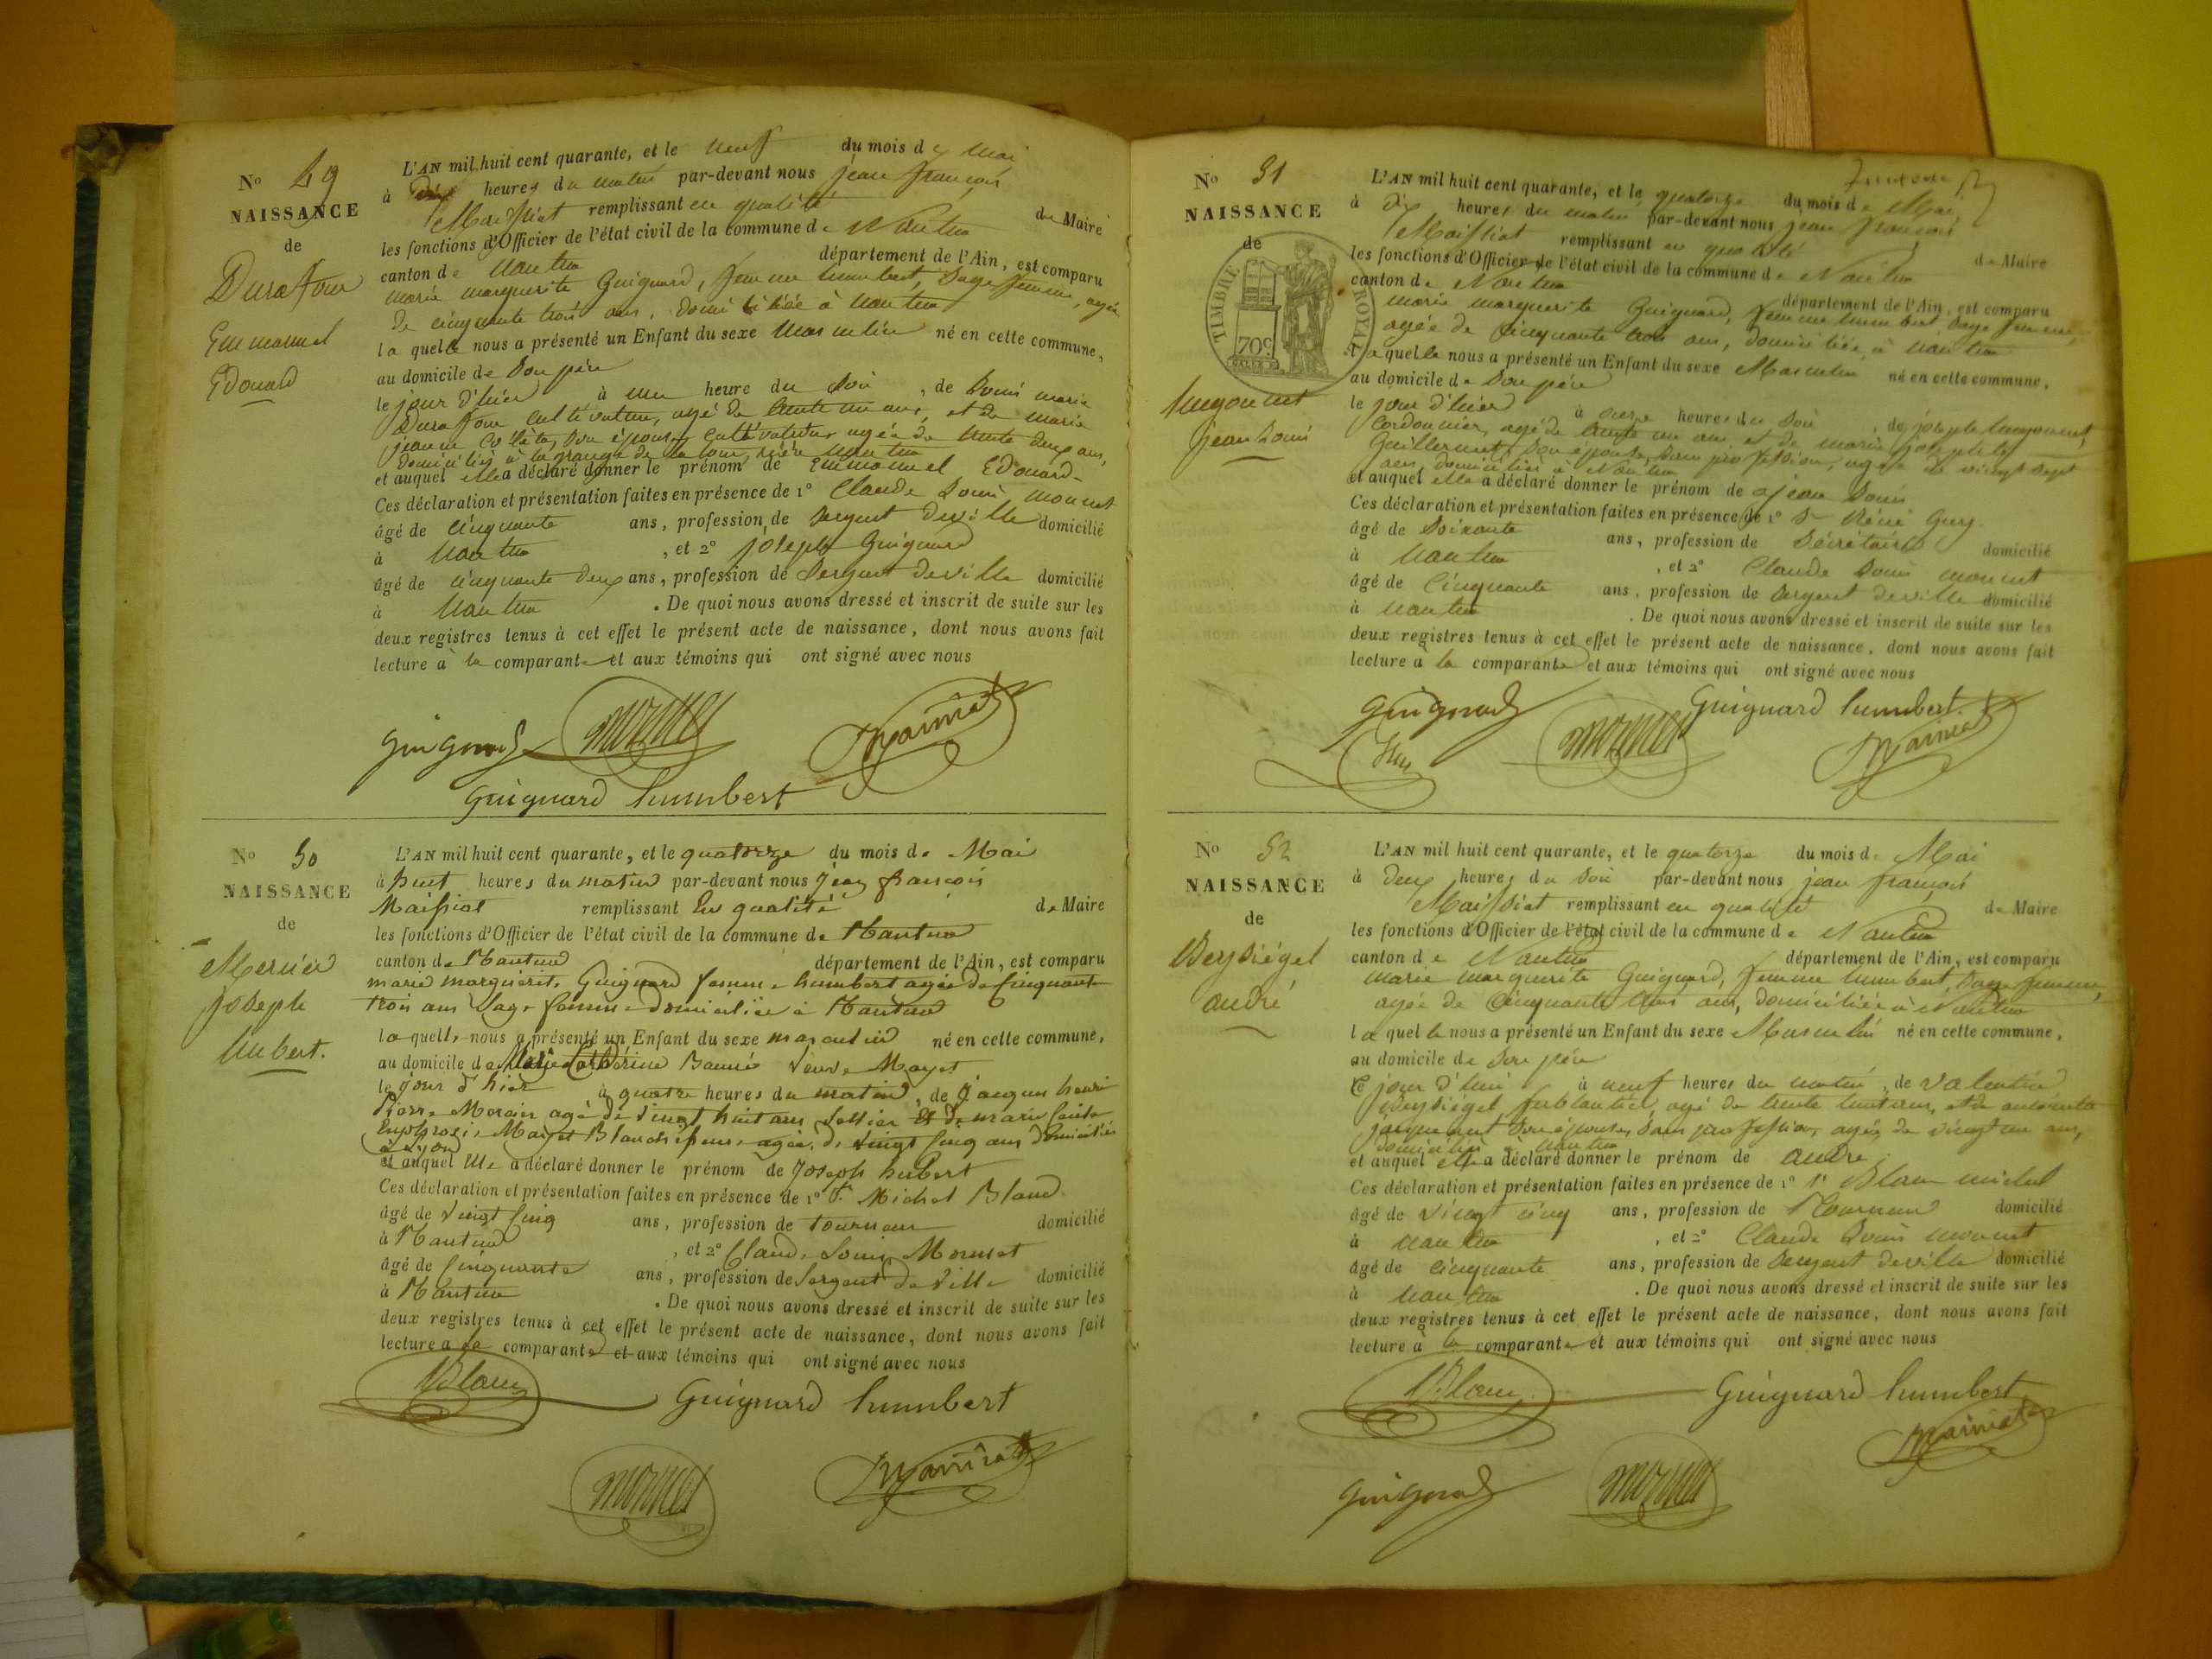 No 49
NAISSANCE
de
Durafour
Emmanuel
Edouard
L'AN mil huit cent quarante, et le neuf du mois de Mai
à dix heures du matin par-devant nous jean françois
Maissiat remplissant en qualité de Maire
les fonctions d'Officier de l'état civil de la commune de Nantua
canton de Nantua département de l'Ain, est comparu
marie marguerite Guignard, femme humbert, Sage femme, agée
de cinquante trois ans, domiciliée à Nantua
laquelle nous a présenté un Enfant du sexe Masculin né en cette commune,
au domicile de Son père
le jour d'hier à une heure du Soir, de Louis marie
Durafour cultivateur, agé de trente un ans, et de marie
jeanne Son épouse, cultivatrice agée de trente deux ans,
domiciliés à la grange de la tour, rière Nantua
et auquel elle a déclaré donner le prénom de Emmanuel Edouard-
Ces déclaration et présentation faites en présence de 1° Claude Louis monnet
âgé de cinquante ans, profession de Sergent de ville domicilié
à Nantua, et 2° joseph Guignard
âgé de cinquante deux ans, profession de Sergent de ville domicilié
à Nantua. De quoi nous avons dressé et inscrit de suite sur les
deux registres tenus à cet effet le présent acte de naissance, dont nous avons fait
lecture à la comparante et aux témoins qui ont signé avec nous
Guignard monnet Maissiat
Guignard humbert
No 50
NAISSANCE
de
Mercier
Joseph
hubert.
L'AN mil huit cent quarante, et le quatorze du mois de Mai
à huit heures du matin par-devant nous Jean françois
Maissiat remplissant En qualité de Maire
les fonctions d'Officier de l'état civil de la commune de Nantua
canton de Nantua département de l'Ain, est comparu
marie marguerite Guignard femme humbert agée de cinquante
trois ans Sage femme domiciliée à Nantua
laquelle nous a présenté un Enfant du sexe masculin né en cette commune,
au domicile de Veuve Mayet
le jour d'hier à quatre heures du matin, de Jacques henri
Pierre Mercier agé de vingt huit ans Sellier et de marie
Mayet Blanchisseuse agée de vingt cinq ans domiciliés
à Lyon
et auquel Elle a déclaré donner le prénom de Joseph hubert
Ces déclaration et présentation faites en présence de 1° Sr. Michel Blanc
âgé de vingt cinq ans, profession de tourneur domicilié
à Nantua, et 2° Claude Louis Monnet
âgé de cinquante ans, profession de Sergent de Ville domicilié
à Nantua. De quoi nous avons dressé et inscrit de suite sur les
deux registres tenus à cet effet le présent acte de naissance, dont nous avons fait
lecture à la comparante et aux témoins qui ont signé avec nous
Blanc Guignard humbert
monnet Maissiat
No 51
NAISSANCE
de
TIMBRE ROYAL
70c
hugonnet
jean Louis
L'AN mil huit cent quarante, et le quatorze du mois de Mai
à dix heures du matin par-devant nous jean françois
Maissiat remplissant en qualité de Maire
les fonctions d'Officier de l'état civil de la commune de Nantua
canton de Nantua département de l'Ain, est comparu
marie marguerite Guignard, femme humbert Sage femme,
agée de cinquante trois ans, domiciliée à Nantua
laquelle nous a présenté un Enfant du sexe Masculin né en cette commune,
au domicile de Son père
le jour d'hier à onze heures du Soir, de joseph hugonnet,
Cordonnier, agé de trente un ans et de marie josephte
Guillermet, Son épouse, Sans profession, agée de vingt Sept
ans, domiciliés à Nantua
et auquel elle a déclaré donner le prénom de jean Louis
Ces déclaration et présentation faites en présence de 1° Sr Réné Guy
âgé de Soixante ans, profession de Sécrétaire domicilié
à Nantua, et 2° Claude Louis monnet
âgé de Cinquante ans, profession de Sergent de ville domicilié
à Nantua. De quoi nous avons dressé et inscrit de suite sur les
deux registres tenus à cet effet le présent acte de naissance, dont nous avons fait
lecture à la comparante et aux témoins qui ont signé avec nous
Guignard Guignard humbert
monnet Maissiat
No 52
NAISSANCE
de
Beysiégel
andré
L'AN mil huit cent quarante, et le quatorze du mois de Mai
à deux heures du Soir par-devant nous jean françois
Maissiat remplissant en qualité de Maire
les fonctions d'Officier de l'état civil de la commune de Nantua
canton de Nantua département de l'Ain, est comparu
marie marguerite Guignard, femme humbert, Sage femme,
agée de Cinquante trois ans, domiciliée à Nantua
laquelle nous a présenté un Enfant du sexe Masculin né en cette commune,
au domicile de Son père
Ce jour d'hui à neuf heures du matin, de Valentin
Beysiégel ferblantier, agé de trente huit ans, et de antoinette
jacquemet Son épouse, Sans profession, agée de vingt un ans,
domiciliés à Nantua
et auquel elle a déclaré donner le prénom de andré
Ces déclaration et présentation faites en présence de 1° Sr Blanc michel
âgé de vingt cinq ans, profession de Tourneur domicilié
à Nantua, et 2° Claude Louis monnet
âgé de cinquante ans, profession de Sergent de ville domicilié
à Nantua. De quoi nous avons dressé et inscrit de suite sur les
deux registres tenus à cet effet le présent acte de naissance, dont nous avons fait
lecture à la comparante et aux témoins qui ont signé avec nous
Blanc Guignard humbert
Maissiat
Guignard monnet